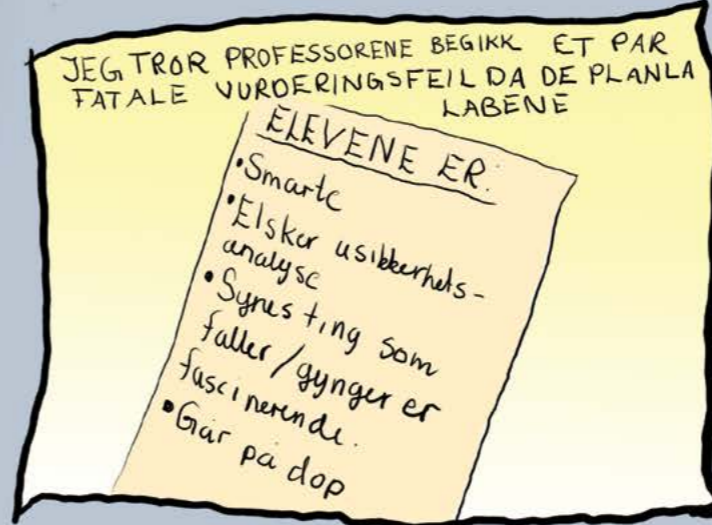 JEG TROR PROFESSORENE BEGIKK ET PAR
FATALE VURDERINGSFEIL DA DE PLANLA
LABENE
ELEVENE ER:
•Smarte
•Elsker usikkerhets-
analyse
•Synes ting som
faller/gynger er
fascinerende.
•Går på dop